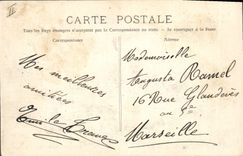 CARTE POSTALE
Tous les Pays étrangers n'acceptent pas la Correspondance au recto. — Se renseigner à la Poste
Correspondance
Adresse
Mes meilleures
amitiés
Mademoiselle
Augusta Ramel
16 Rue Glandevès
au 3e
Marseille